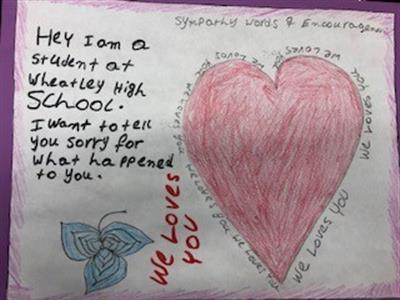 Sympathy Words & Encouragement
Hey I am a
student at
Wheatley High
SCHOOL.
I want to tell
you sorry for
what happened
to you.
We Loves
You
We Loves You
We Loves You
We Loves You
We Loves You
We Loves You
We Loves You